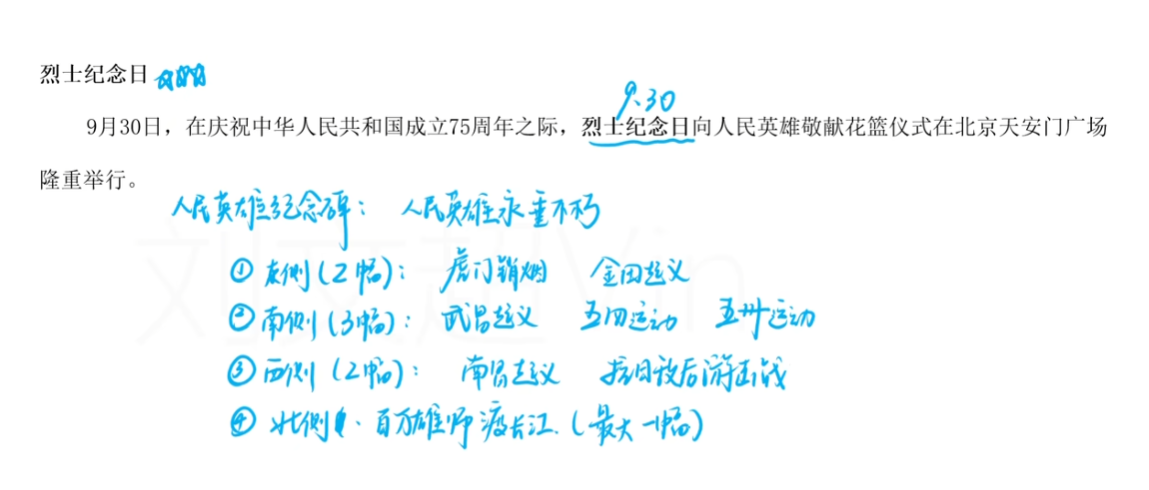 烈士纪念日
9.30
9月30日，在庆祝中华人民共和国成立75周年之际，烈士纪念日向人民英雄敬献花篮仪式在北京天安门广场
隆重举行。
人民英雄纪念碑： 人民英雄永垂不朽
① 东侧（2幅）： 虎门销烟 金田起义
② 南侧（3幅）： 武昌起义 五四运动 五卅运动
③ 西侧（2幅）： 南昌起义 抗日敌后游击战
④ 北侧. 百万雄师渡长江.（最大一幅）